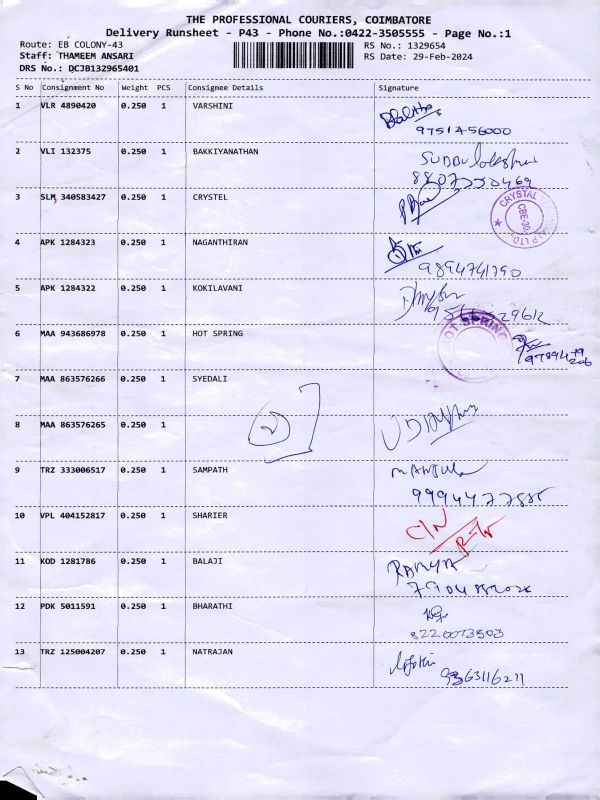 THE PROFESSIONAL COURIERS, COIMBATORE
Delivery Runsheet - P43 - Phone No.:0422-3505555 - Page No.:1
Route: EB COLONY-43 RS No.: 1329654
Staff: THAMEEM ANSARI RS Date: 29-Feb-2024
DRS No.: DCJB132965401
S No Consignment No Weight PCS Consignee Details Signature
1 VLR 4890420 0.250 1 VARSHINI
9751456000
2 VLI 132375 0.250 1 BAKKIYANATHAN
3 SLM 340583427 0.250 1 CRYSTEL
CRYSTAL
CBE-30
P LTD
4 APK 1284323 0.250 1 NAGANTHIRAN
9894741790
5 APK 1284322 0.250 1 KOKILAVANI
6 MAA 943686978 0.250 1 HOT SPRING
HOT SPRING
7 MAA 863576266 0.250 1 SYEDALI
8 MAA 863576265 0.250 1
9 TRZ 333006517 0.250 1 SAMPATH MANJULA
10 VPL 404152817 0.250 1 SHARIER
C/N
11 KOD 1281786 0.250 1 BALAJI RAMYA
12 PDK 5011591 0.250 1 BHARATHI
8220073503
13 TRZ 125004207 0.250 1 NATRAJAN
9363116211